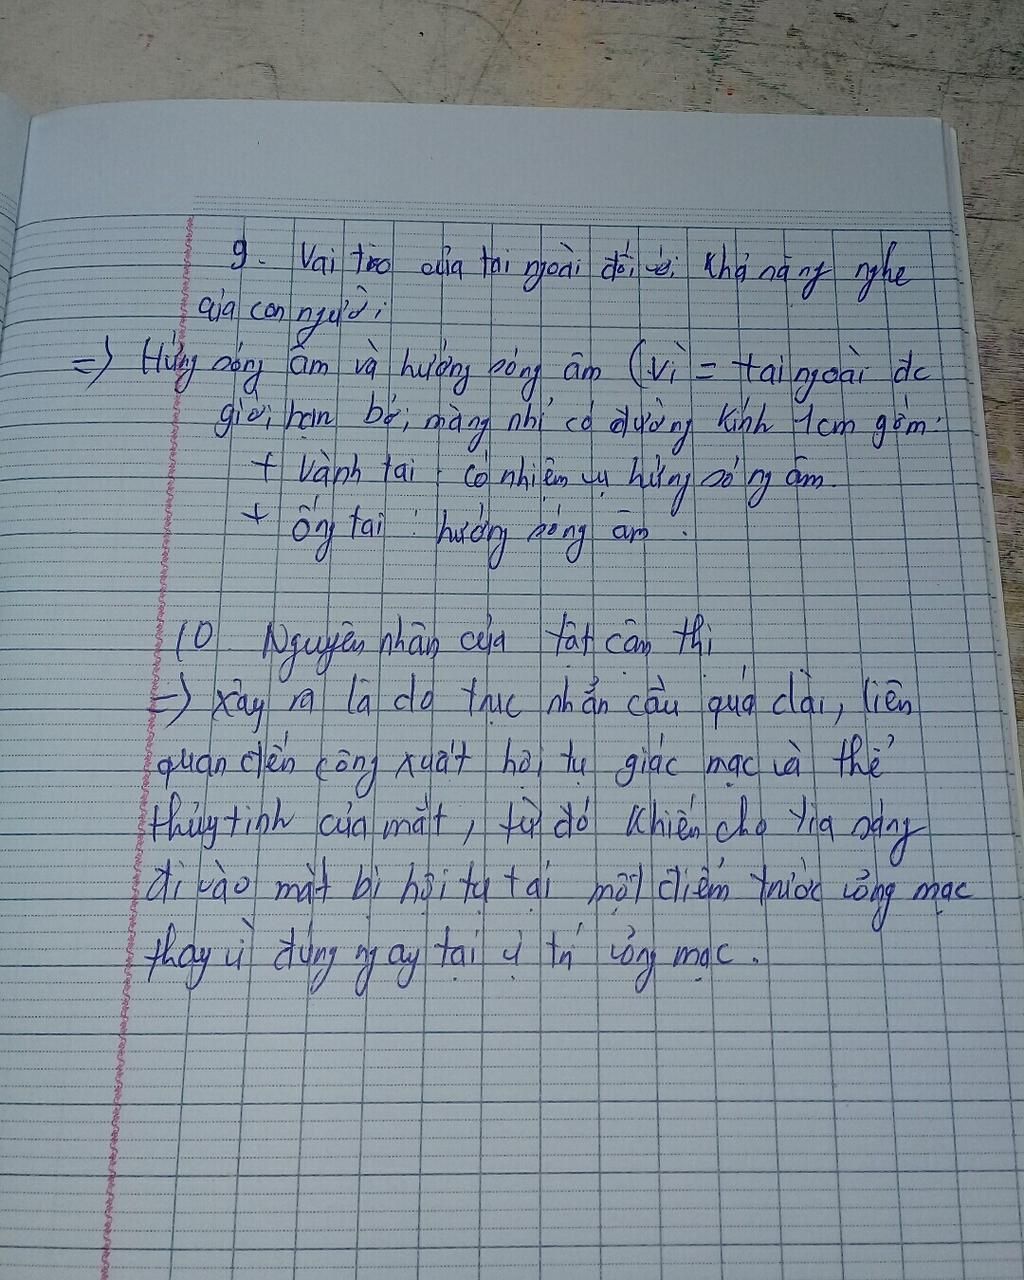 9. Vai trò của tai ngoài đối với khả năng nghe
của con người
=> Hứng sóng âm và hướng sóng âm (vì = tai ngoài dc
giới hạn bởi màng nhĩ có đường kính 1cm gồm:
+ Vành tai : có nhiệm vụ hứng sóng âm.
+ ống tai : hướng sóng âm.
10 Nguyên nhân của tật cận thị
=> xảy ra là do trục nhãn cầu quá dài, liên
quan đến công xuất hội tụ giác mạc và thể
thủy tinh của mắt, từ đó khiến cho tia sáng
đi vào mắt bị hội tụ tại một điểm trước võng mạc
thay vì đứng ngay tại vị trí võng mạc.